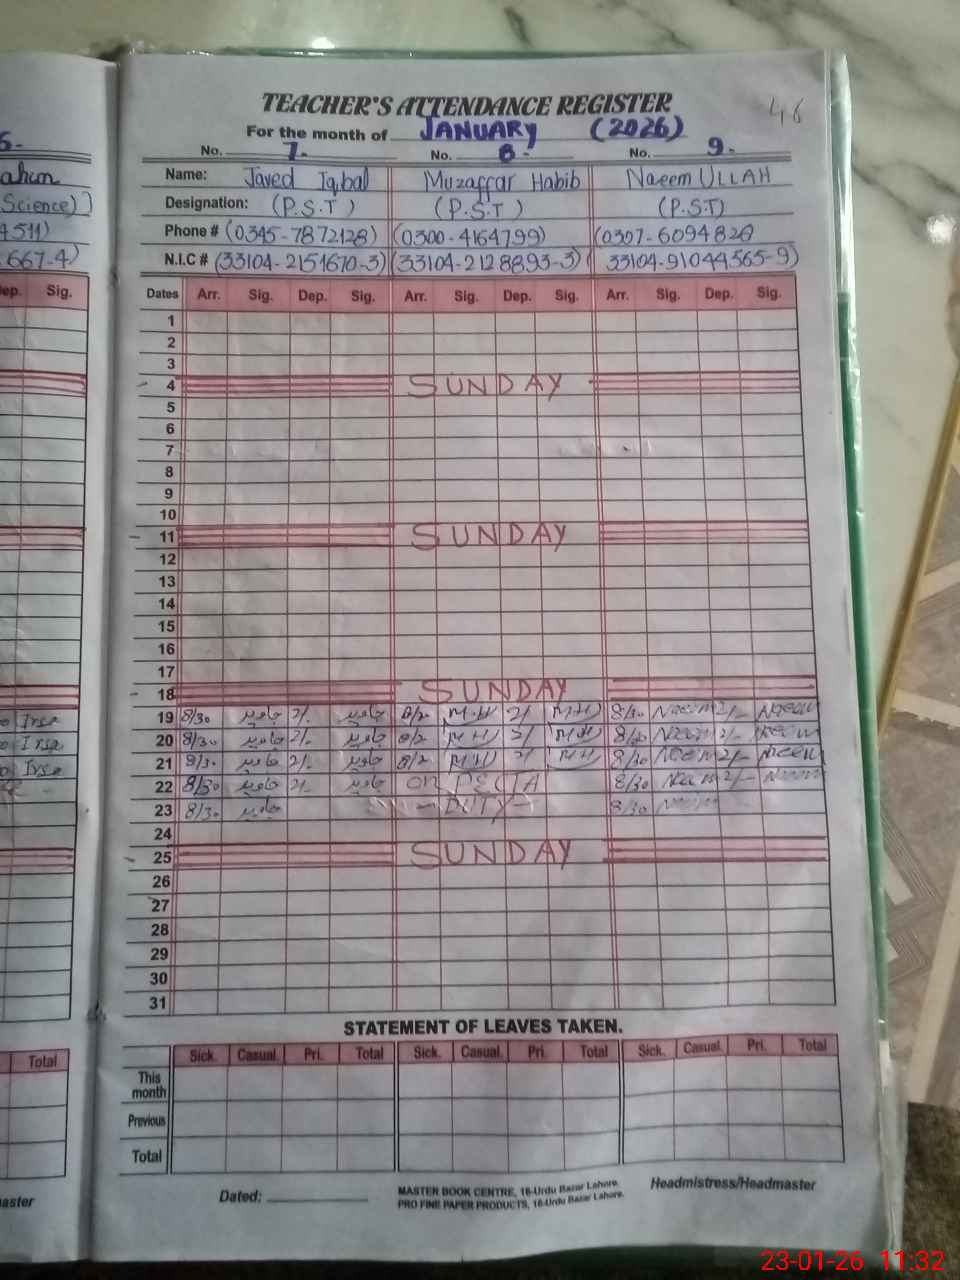 46
TEACHER'S ATTENDANCE REGISTER
For the month of JANUARY (2026)
No. 7- No. 8- No. 9-
Name: Javed Iqbal Muzaffar Habib Naeem ULLAH
Designation: (P.S.T) (P.S.T) (P.S.T)
Phone # (0345-7872128) (0300-4164799) (0307-6094828
N.I.C # (33104-2151670-3) (33104-2128893-3) (33104-91044565-9)
Dates Arr. Sig. Dep. Sig. Arr. Sig. Dep. Sig. Arr. Sig. Dep. Sig.
1
2
3
4 SUNDAY
5
6
7
8
9
10
11 SUNDAY
12
13
14
15
16
17
18 SUNDAY
19 8/30 جاوید 2/- جاوید 8/2 M.H 2/ M.H 8/30 Naeem 2/- Naeem
20 8/30 جاوید 2/- جاوید 8/2 M.H 2/ M.H 8/30 Naeem 2/- Naeem
21 8/30 جاوید 2/- جاوید 8/2 M.H 2/ M.H 8/30 Naeem 2/- Naeem
22 8/30 جاوید 2/- جاوید on PECTA 8/30 Naeem 2/- Naeem
23 8/30 جاوید DUTY 8/30 Naeem
24
25 SUNDAY
26
27
28
29
30
31
STATEMENT OF LEAVES TAKEN.
Sick. Casual. Pri. Total Sick. Casual. Pri. Total Sick. Casual. Pri. Total
This month
Previous
Total
Dated:
MASTER BOOK CENTRE, 16-Urdu Bazar Lahore.
PRO FINE PAPER PRODUCTS, 16-Urdu Bazar Lahore.
Headmistress/Headmaster
Science)
4511)
667-4)
Sig.
Irsa
Irsa
Irsa
Total
23-01-26 11:32